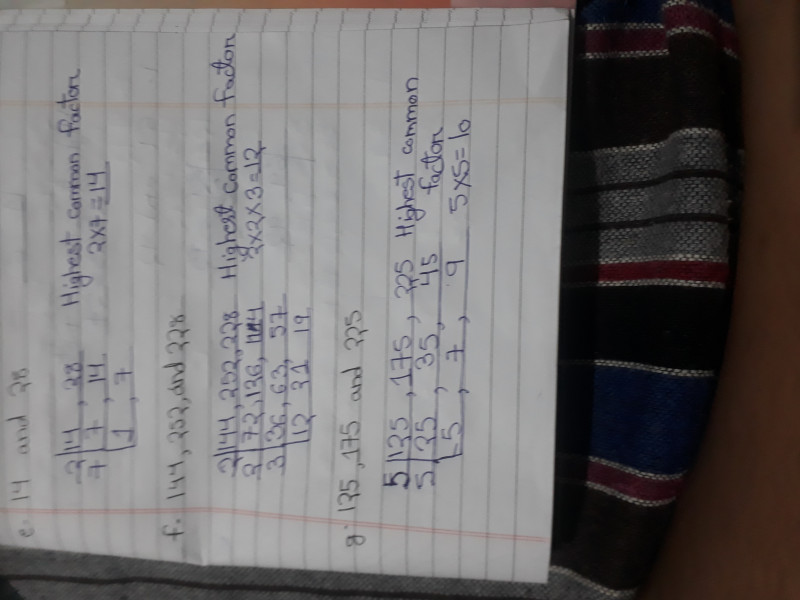 e. 14 and 28
2 | 14, 28 Highest common factor
7 | 7, 14 2x7=14
1, 7
f. 144, 252, and 228
2 | 144, 252, 228 Highest common factor
2 | 72, 126, 114 2x2x3=12
3 | 36, 63, 57
12 21 19
g. 125, 175 and 225
5 | 125, 175, 225 Highest common
5 | 25, 35, 45 factor
5, 7, 9 5x5=10